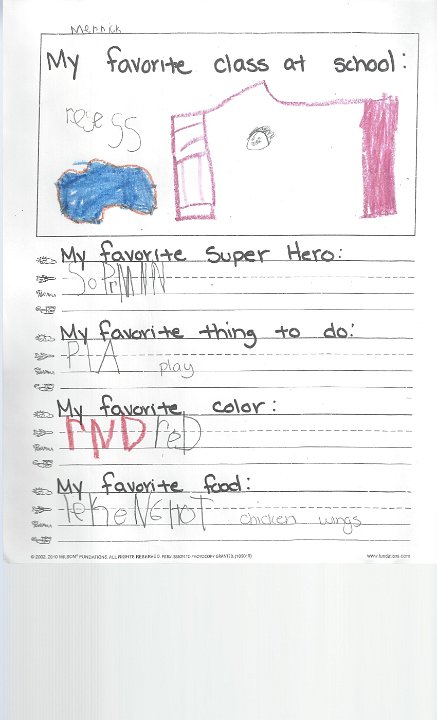 Merrick
My favorite class at school:
resess
My favorite Super Hero:
SoPrMAN
My favorite thing to do:
PlA play
My favorite color:
rND reD
My favorite food:
chicken wings
© 2002, 2010 WILSON FUNDATIONS. ALL RIGHTS RESERVED. PERMISSION TO PHOTOCOPY GRANTED.
www.fundations.com